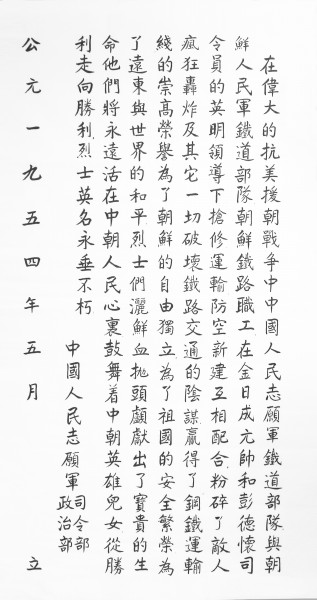 在偉大的抗美援朝戰争中中國人民志願軍鐵道部隊與朝
鮮人民軍鐵道部隊朝鮮鐵路職工在金日成元帥和彭德懷司
令員的英明領導下搶修運輸防空新建互相配合.粉碎了敵人
瘋狂轟炸及其它一切破壞鐵路交通的陰謀.贏得了鋼鐵運輸
綫的崇高榮譽為了朝鮮的自由獨立為了祖國的安全繁榮為
了遠東與世界的和平烈士們灑鮮血抛頭顱獻出了寶貴的生
命他們將永遠活在中朝人民心裏鼓舞着中朝英雄兒女從勝
利走向勝利.烈士英名永垂不朽
中國人民志願軍
司令部
政治部
公元一九五四年五月 立